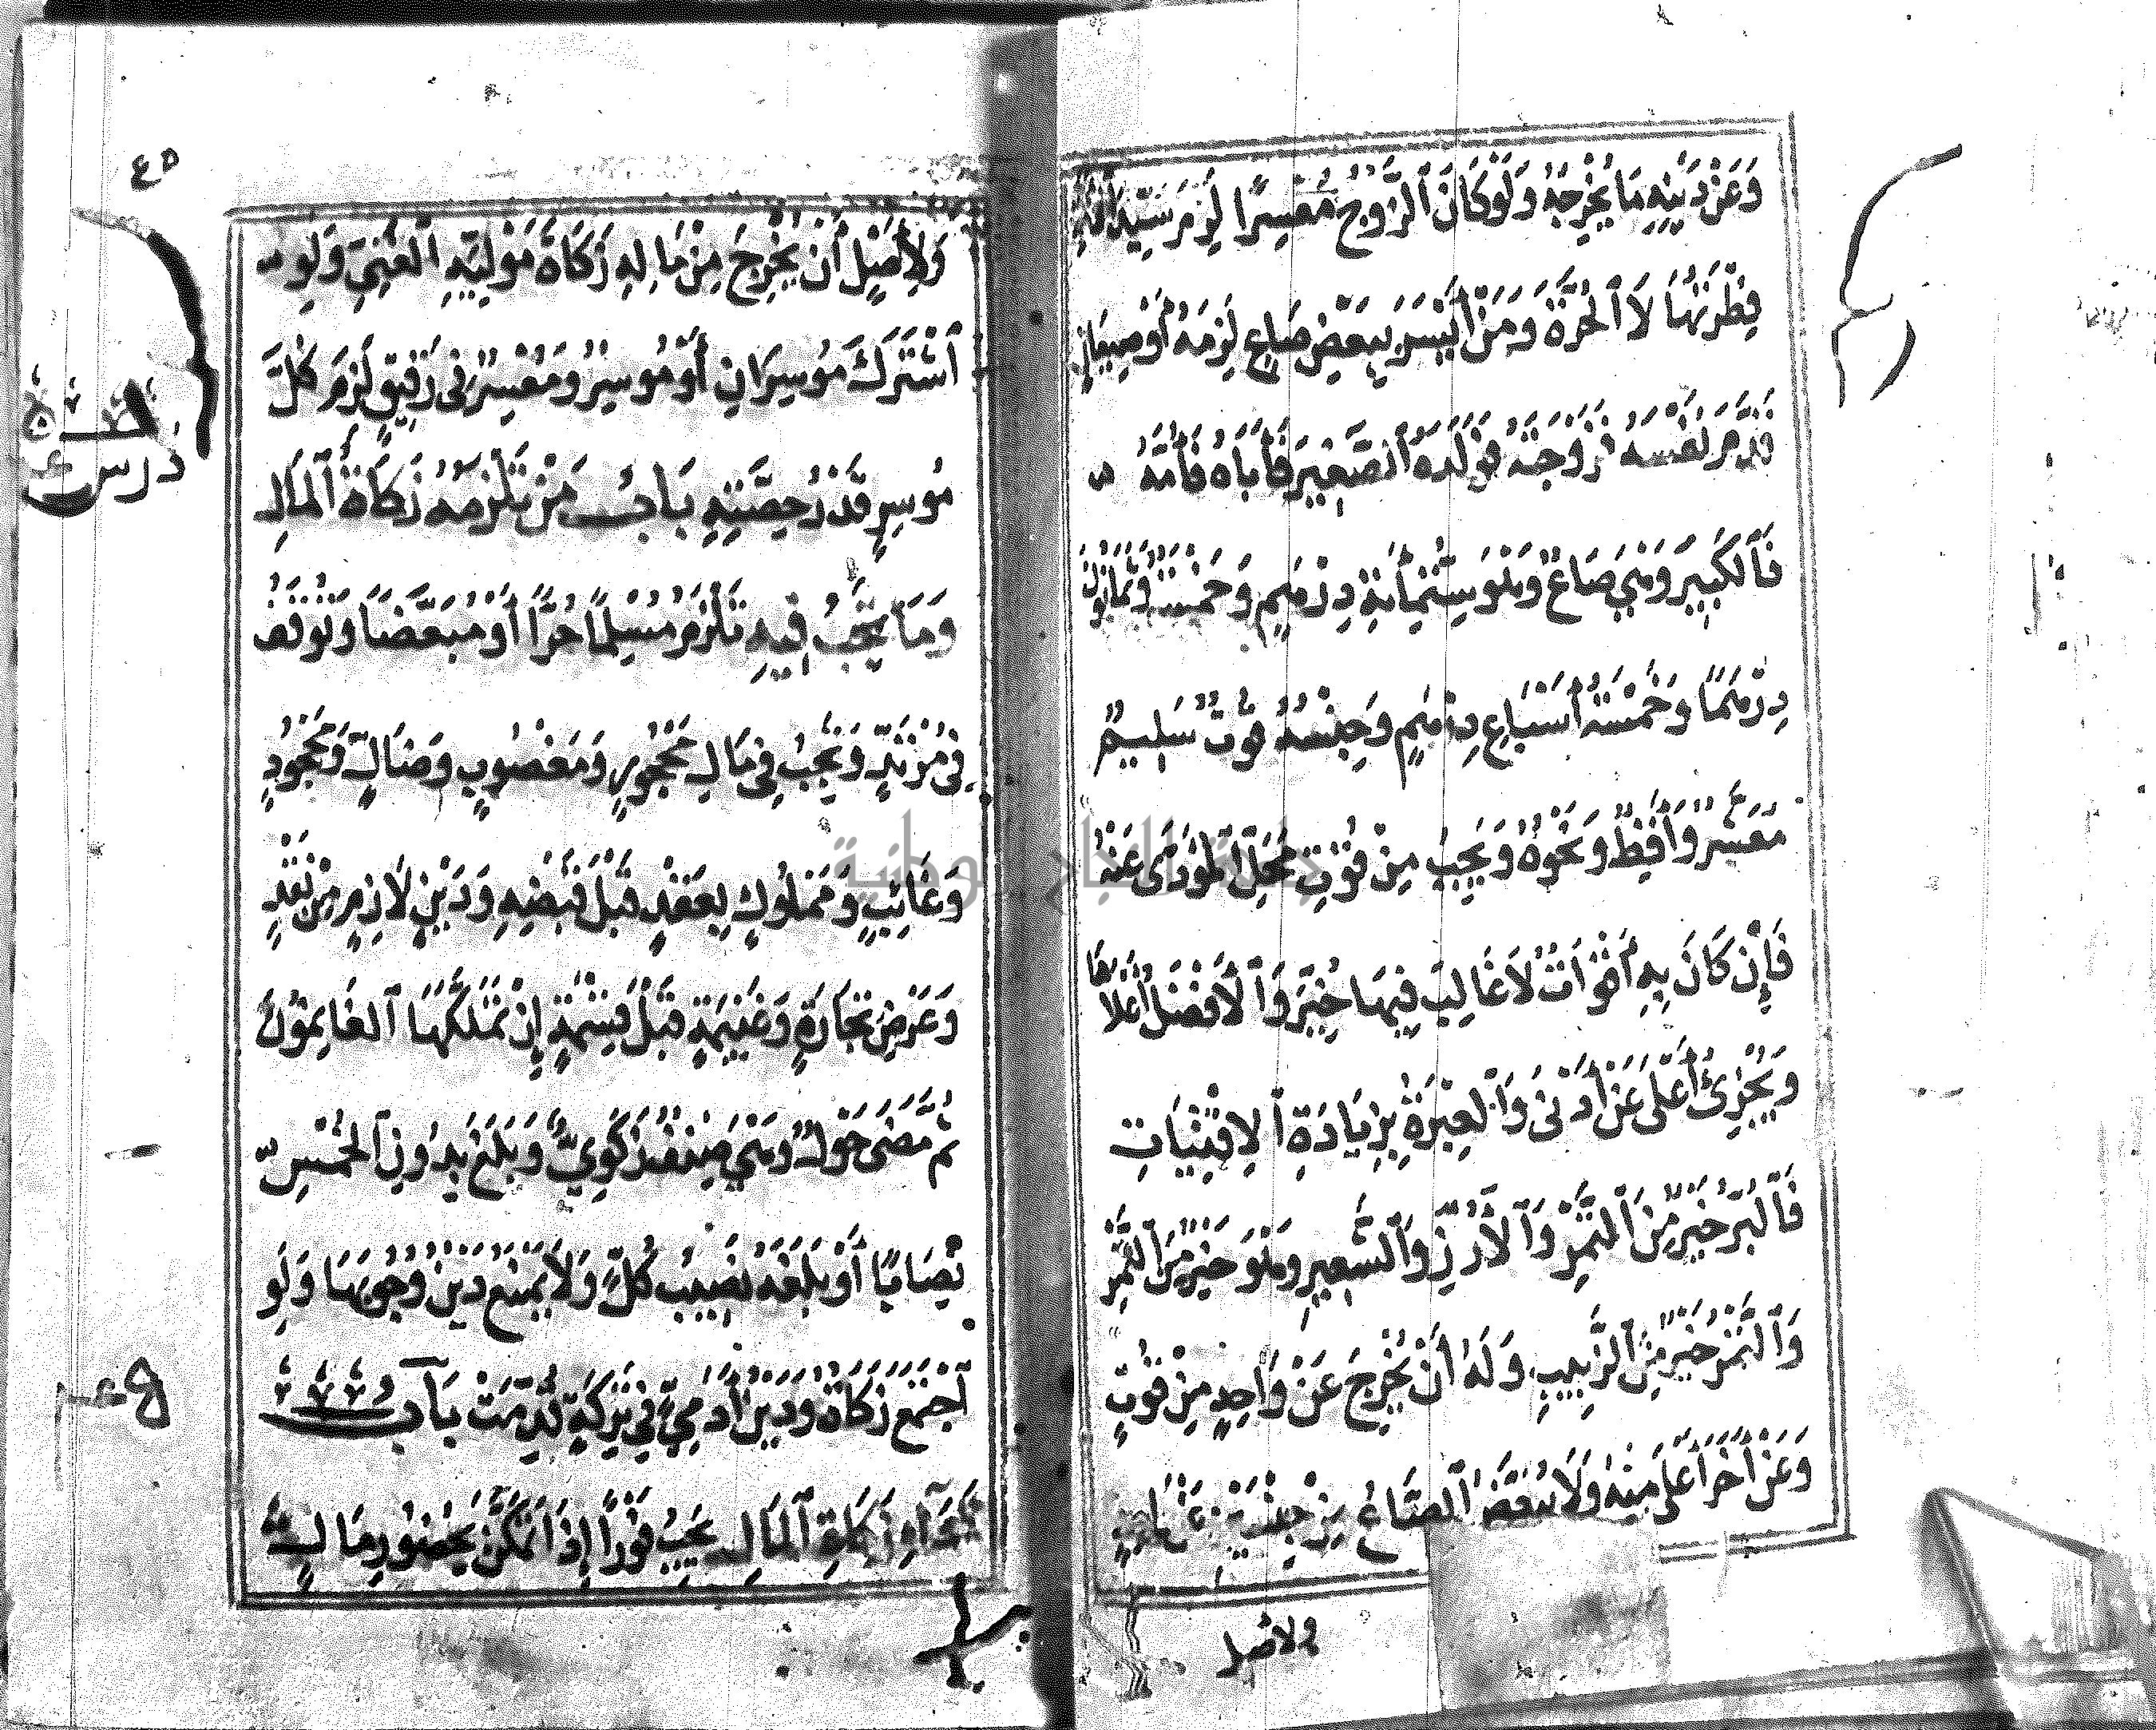 وَعَنْ دَيْنِهِ مَا يُخْرِجُهُ وَلَوْ كَانَ ٱلزَّوْجُ مُعْسِرًا لَزِمَ سَيِّدَ ٱلْأَمَةِ
فِطْرَتُهَا لَا ٱلْحُرَّةَ وَمَنْ أَيْسَرَ بِبَعْضِ صَاعٍ لَزِمَهُ أَوْ صِيعَانٍ
قَدَّمَ نَفْسَهُ فَزَوْجَتَهُ فَوَلَدَهُ ٱلصَّغِيرَ فَأَبَاهُ فَأُمَّهُ
فَٱلْكَبِيرَ وَهِيَ صَاعٌ وَهُوَ سِتُّمِائَةِ دِرْهَمٍ وَخَمْسَةٌ وَثَمَانُونَ
دِرْهَمًا وَخَمْسَةُ أَسْبَاعِ دِرْهَمٍ وَجِنْسُهُ قُوتٌ سَلِيمٌ
مُعَشَّرٌ وَأَقِطٌ وَنَحْوُهُ وَيَجِبُ مِنْ قُوتِ مَحَلِّ ٱلْمُؤَدَّى عَنْهُ
فَإِنْ كَانَ بِهِ أَقْوَاتٌ لَا غَالِبَ فِيهَا خُيِّرَ وَٱلْأَفْضَلُ أَعْلَاهَا
وَيُجْزِئُ أَعْلَى عَنْ أَدْنَى وَٱلْعِبْرَةُ بِزِيَادَةِ ٱلِاقْتِيَاتِ
فَٱلْبُرُّ خَيْرٌ مِنَ ٱلتَّمْرِ وَٱلْأَرُزِّ وَٱلشَّعِيرِ وَهُوَ خَيْرٌ مِنَ ٱلتَّمْرِ
وَٱلتَّمْرُ خَيْرٌ مِنَ ٱلزَّبِيبِ وَلَهُ أَنْ يُخْرِجَ عَنْ وَاحِدٍ مِنْ قُوتٍ
وَعَنْ أَخَرَ أَعْلَى مِنْهُ وَلَا يُبَعَّضُ ٱلصَّاعُ مِنْ جِنْسَيْنِ
ولاصيل
٤٥
وَلِأَصِيْلٍ أَنْ يُخْرِجَ مِنْ مَالِهِ زَكَاةَ مَوْلِيِّهِ ٱلْغَنِيِّ وَلَوِ
ٱشْتَرَكَ مُوسِرَانِ أَوْ مُوسِرٌ وَمُعْسِرٌ فِى رَقِيقٍ لَزِمَ كُلَّ
مُوسِرٍ قَدْرُ حِصَّتِهِ بَابُ مَنْ تَلْزَمُهُ زَكَاةُ ٱلْمَالِ
وَمَا تَجِبُ فِيهِ تَلْزَمُ مُسْلِمًا حُرًّا أَوْ مُبَعَّضًا وَتُوْقَفُ
فِى مُرْتَدٍّ وَتَجِبُ فِى مَالِ مَحْجُورٍ وَمَغْصُوبٍ وَضَالٍّ وَمَجْحُودٍ
وَغَائِبٍ وَمَمْلُوكٍ بِعَقْدٍ قَبْلَ قَبْضِهِ وَدَيْنٍ لَازِمٍ مِنْ نَقْدٍ
وَعَرْضِ تِجَارَةٍ وَغَنِيمَةٍ قَبْلَ قِسْمَةٍ إِنْ تَمَلَّكَهَا ٱلْغَانِمُوْنَ
ثُمَّ مَضَى حَوْلٌ وَهِيَ صِنْفٌ زَكَوِيٌّ وَبَلَغَ بِدُونِ ٱلْخُمُسِ
نِصَابًا أَوْ بَلَغَهُ نَصِيبُ كُلٍّ وَلَا يَمْنَعُ دَيْنٌ وُجُوبَهَا وَلَوِ
ٱجْتَمَعَ زَكَاةٌ وَدَيْنُ أٰدَمِيٍّ فِى تَرِكَةٍ قُدِّمَتْ بَابُ
أَدَاءِ زَكَاةِ ٱلْمَالِ يَجِبُ فَوْرًا إِذَا تَمَكَّنَ بِحُضُورِ مَالٍ
درس